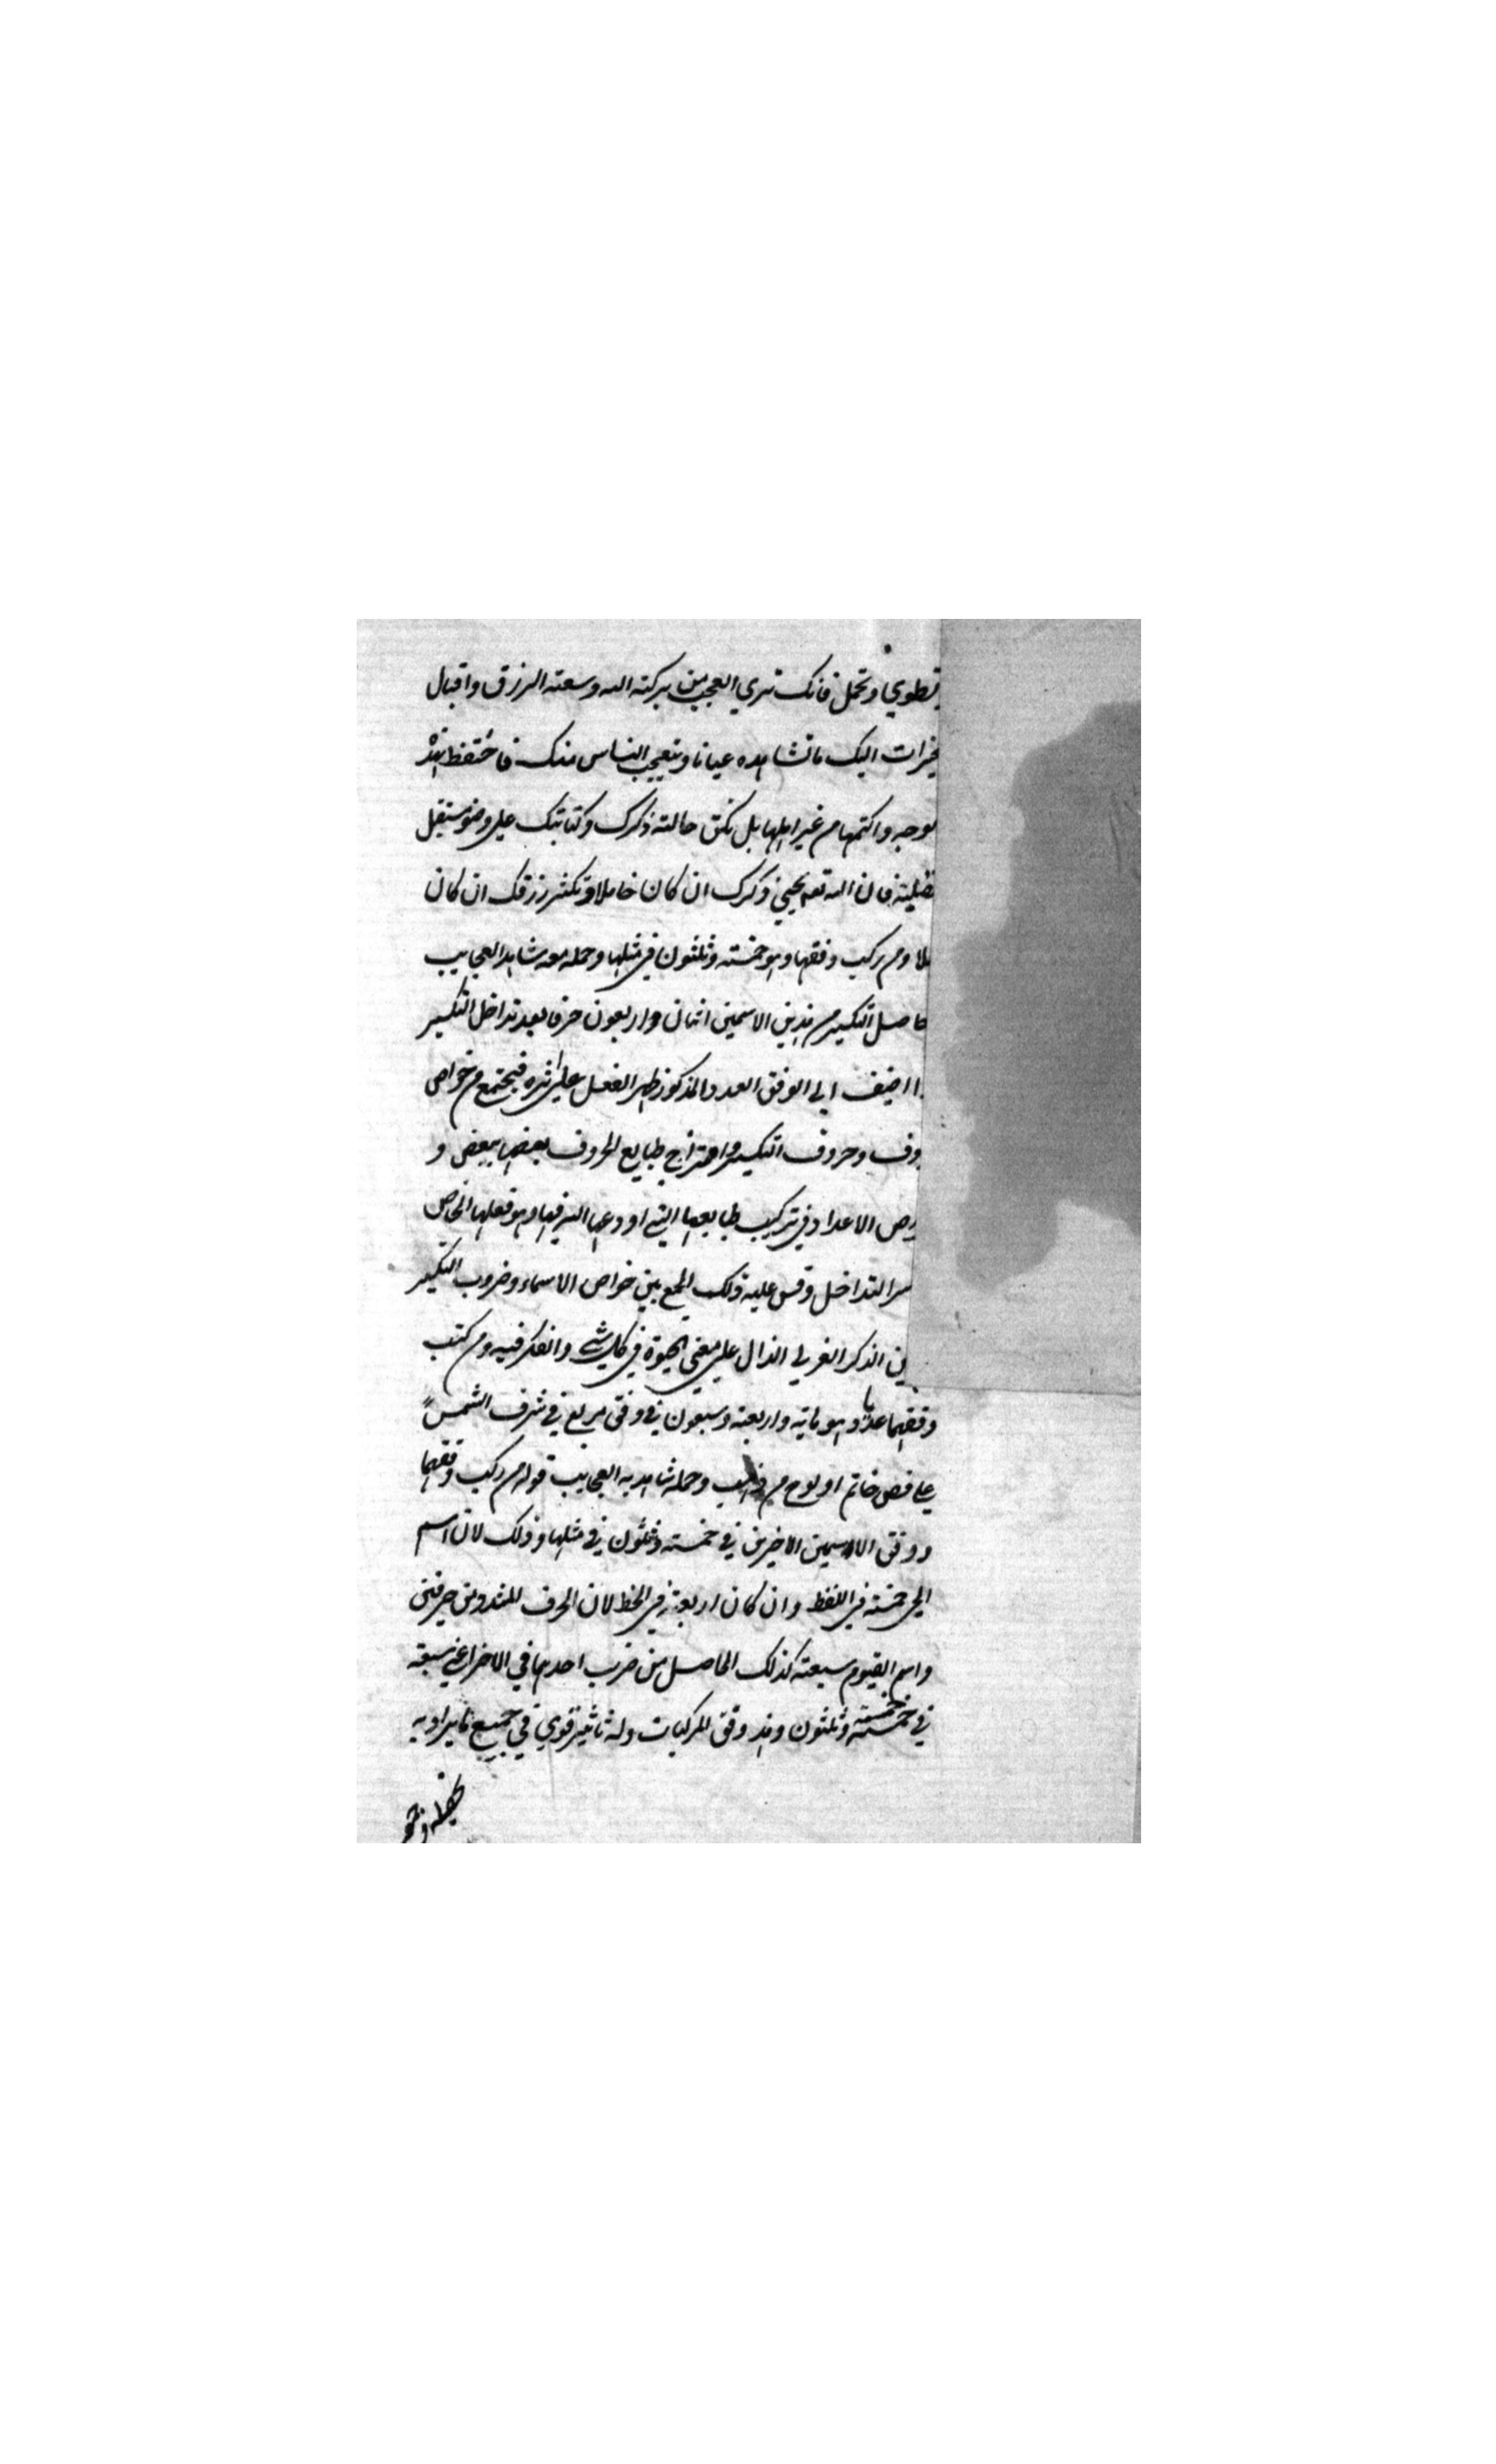 وتطوي وتحمل فانك تري العجب من بركته الله وسعته الرزق واقبال
الخيرات اليك ما تشاهده عيانا ويتعجب الناس منك فاحتفظ بهذ
لوجه واكتمها من غير اهلها بل تكن حالته ذكرك وكتابتك علي وضو مستقبل
القبلة فان الله تعه يحيي ذكرك ان كان خاملا ويكثر رزقك ان كان
قليلا ومن ركب وفقها وهو خمسته وثلثون في مثلها وحمله معه شاهد العجايب
حاصل التكسير من هذين الاسمين اثنان واربعون حرفا بعد تداخل التكسير
اذا اضيف الي الوفق العدد المذكور ظهر الفعل علي اثره فيجتمع من خواص
الحروف وحروف التكسير وامتزاج طبايع الحروف بعضها ببعض و
خواص الاعداد في تركيب طبايعها التي اودعها الله فيها وهو فعلها الخاص
سر التداخل وقس عليه ذلك الجمع بين خواص الاسماء وضروب التكسير
من الذكر الدال علي معني الحيوة في كل شي والفكر فيه ومن كتب
وفقهما عدديا وهو مائة واربعة وسبعون في وفق مربع في شرف الشمس
علي فص خاتم او لوح من ذهب وحمله شاهد به العجايب قوله من ركب وفقهما
ووفق الاسمين الاخيرين في خمسته وثلثون في مثلها وذلك لان اسم
الحي خمسته في اللفظ وان كان اربعة في الخط لان الحرف المشدد من حرفين
واسم القيوم سبعته كذلك الحاصل من ضرب احدهما في الاخر اعني سبعة
في خمسته خمسته وثلثون وهذ وفق المركبات وله تاثير قوي في جميع ما يراد به